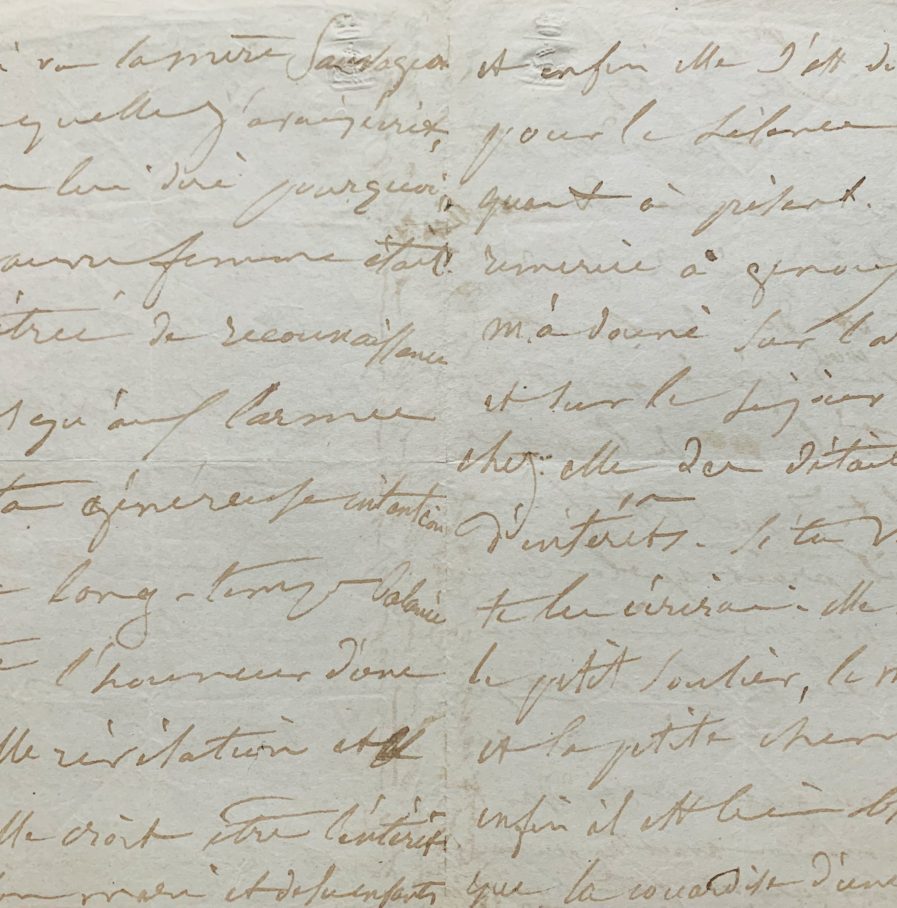 vu la mère Sauvageon
quelle j'avais écrit,
lui dire pourquoi,
femme était
de reconnaissance
qu'au l'armée
ta généreuse intention
long-temps balancé
l'honneur d'une
elle révélation et
elle croit être l'intérêt
mari et de ses enfants
et enfin elle s'est
pour le silence
quant à présent.
remercié à genoux
m'a donné sur l'a
et sur le séjour
chez elle des détail
d'intérêts. Si tu
te les écrirai. elle
le petit soulier, le
et la petite chem
enfin il est bien
que la couardise d'une